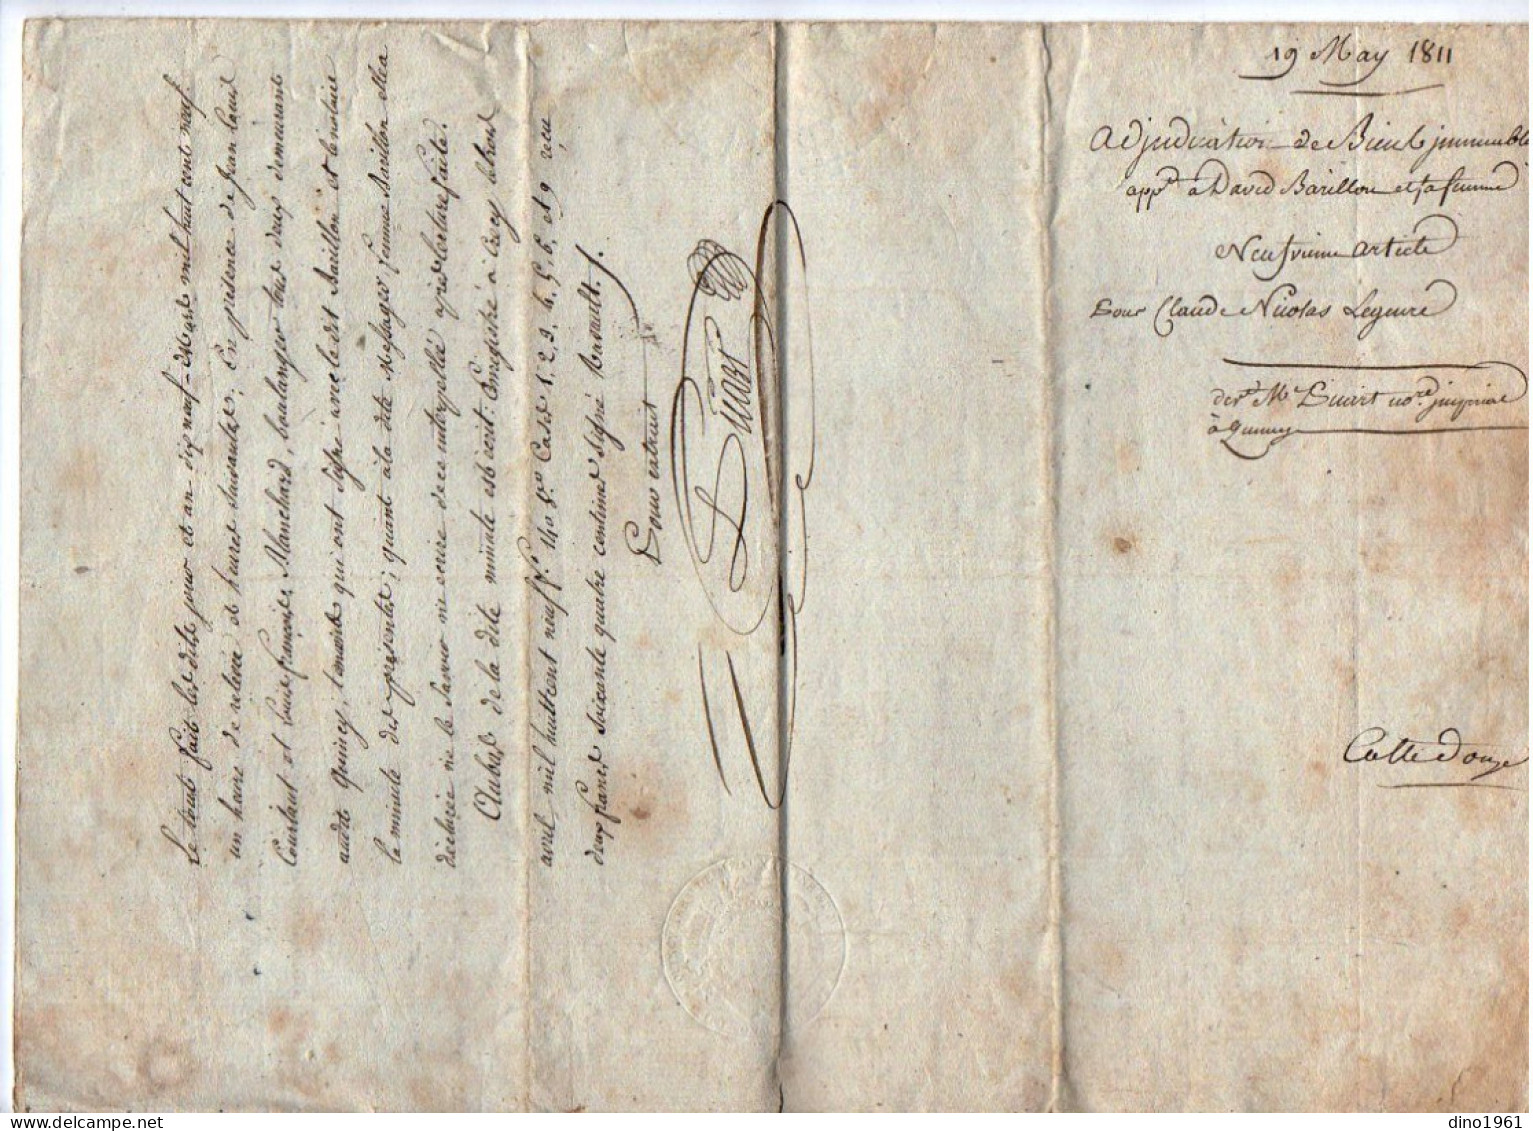 Le tout fait les dits jour et an dix neuf Mars mil huit cent neuf.
un heure de relevée et heures suivantes, En présence de Jean Louis
Courtaut et Louis françois Blanchard, boulanger tous deux demeurant
audit Quincy, témoins qui ont signé avec le dit Barillon et le notaire
la minute des présentes; quant à la dite Messager femme Barillon Elle a
déclarée ne le Savoir ni ecrire de ce interpellée après lecture faite.
Au bas de la dite minute est écrit: Enregistré à Crecy le trois
avril mil huit cent neuf f.º 140 r.º Cases 1, 2, 3, 4, 5, 6, et 9 reçu
deux francs soixante quatre centimes signé Rasoult.
Pour extrait
19 May 1811
Adjudication de Biens immeubles
app.t à David Barillon et sa femme
Neufvieme article
Pour Claude Nicolas Legeure
dev.t M.e not.re imperial
à Quincy
Cotte Douze
dino1961